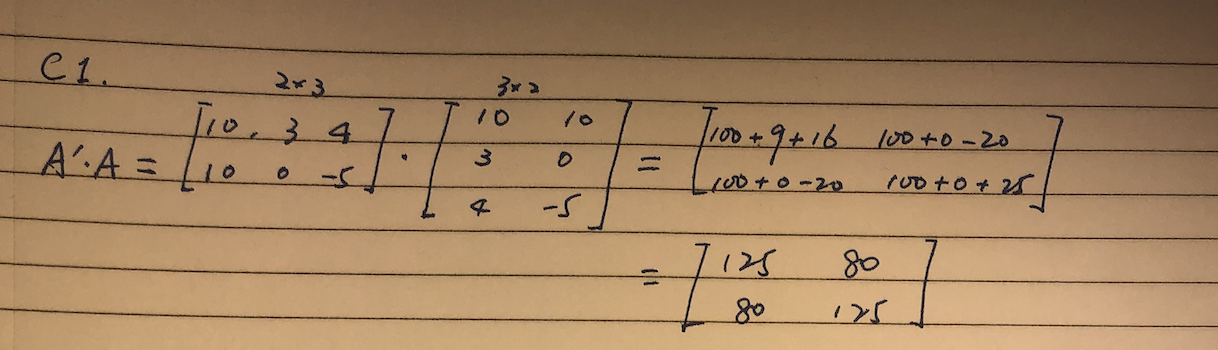 C1.
2×3 3×2
A'·A = [10, 3 4; 10 0 -5] · [10 10; 3 0; 4 -5] = [100+9+16 100+0-20; 100+0-20 100+0+25]
= [125 80; 80 125]